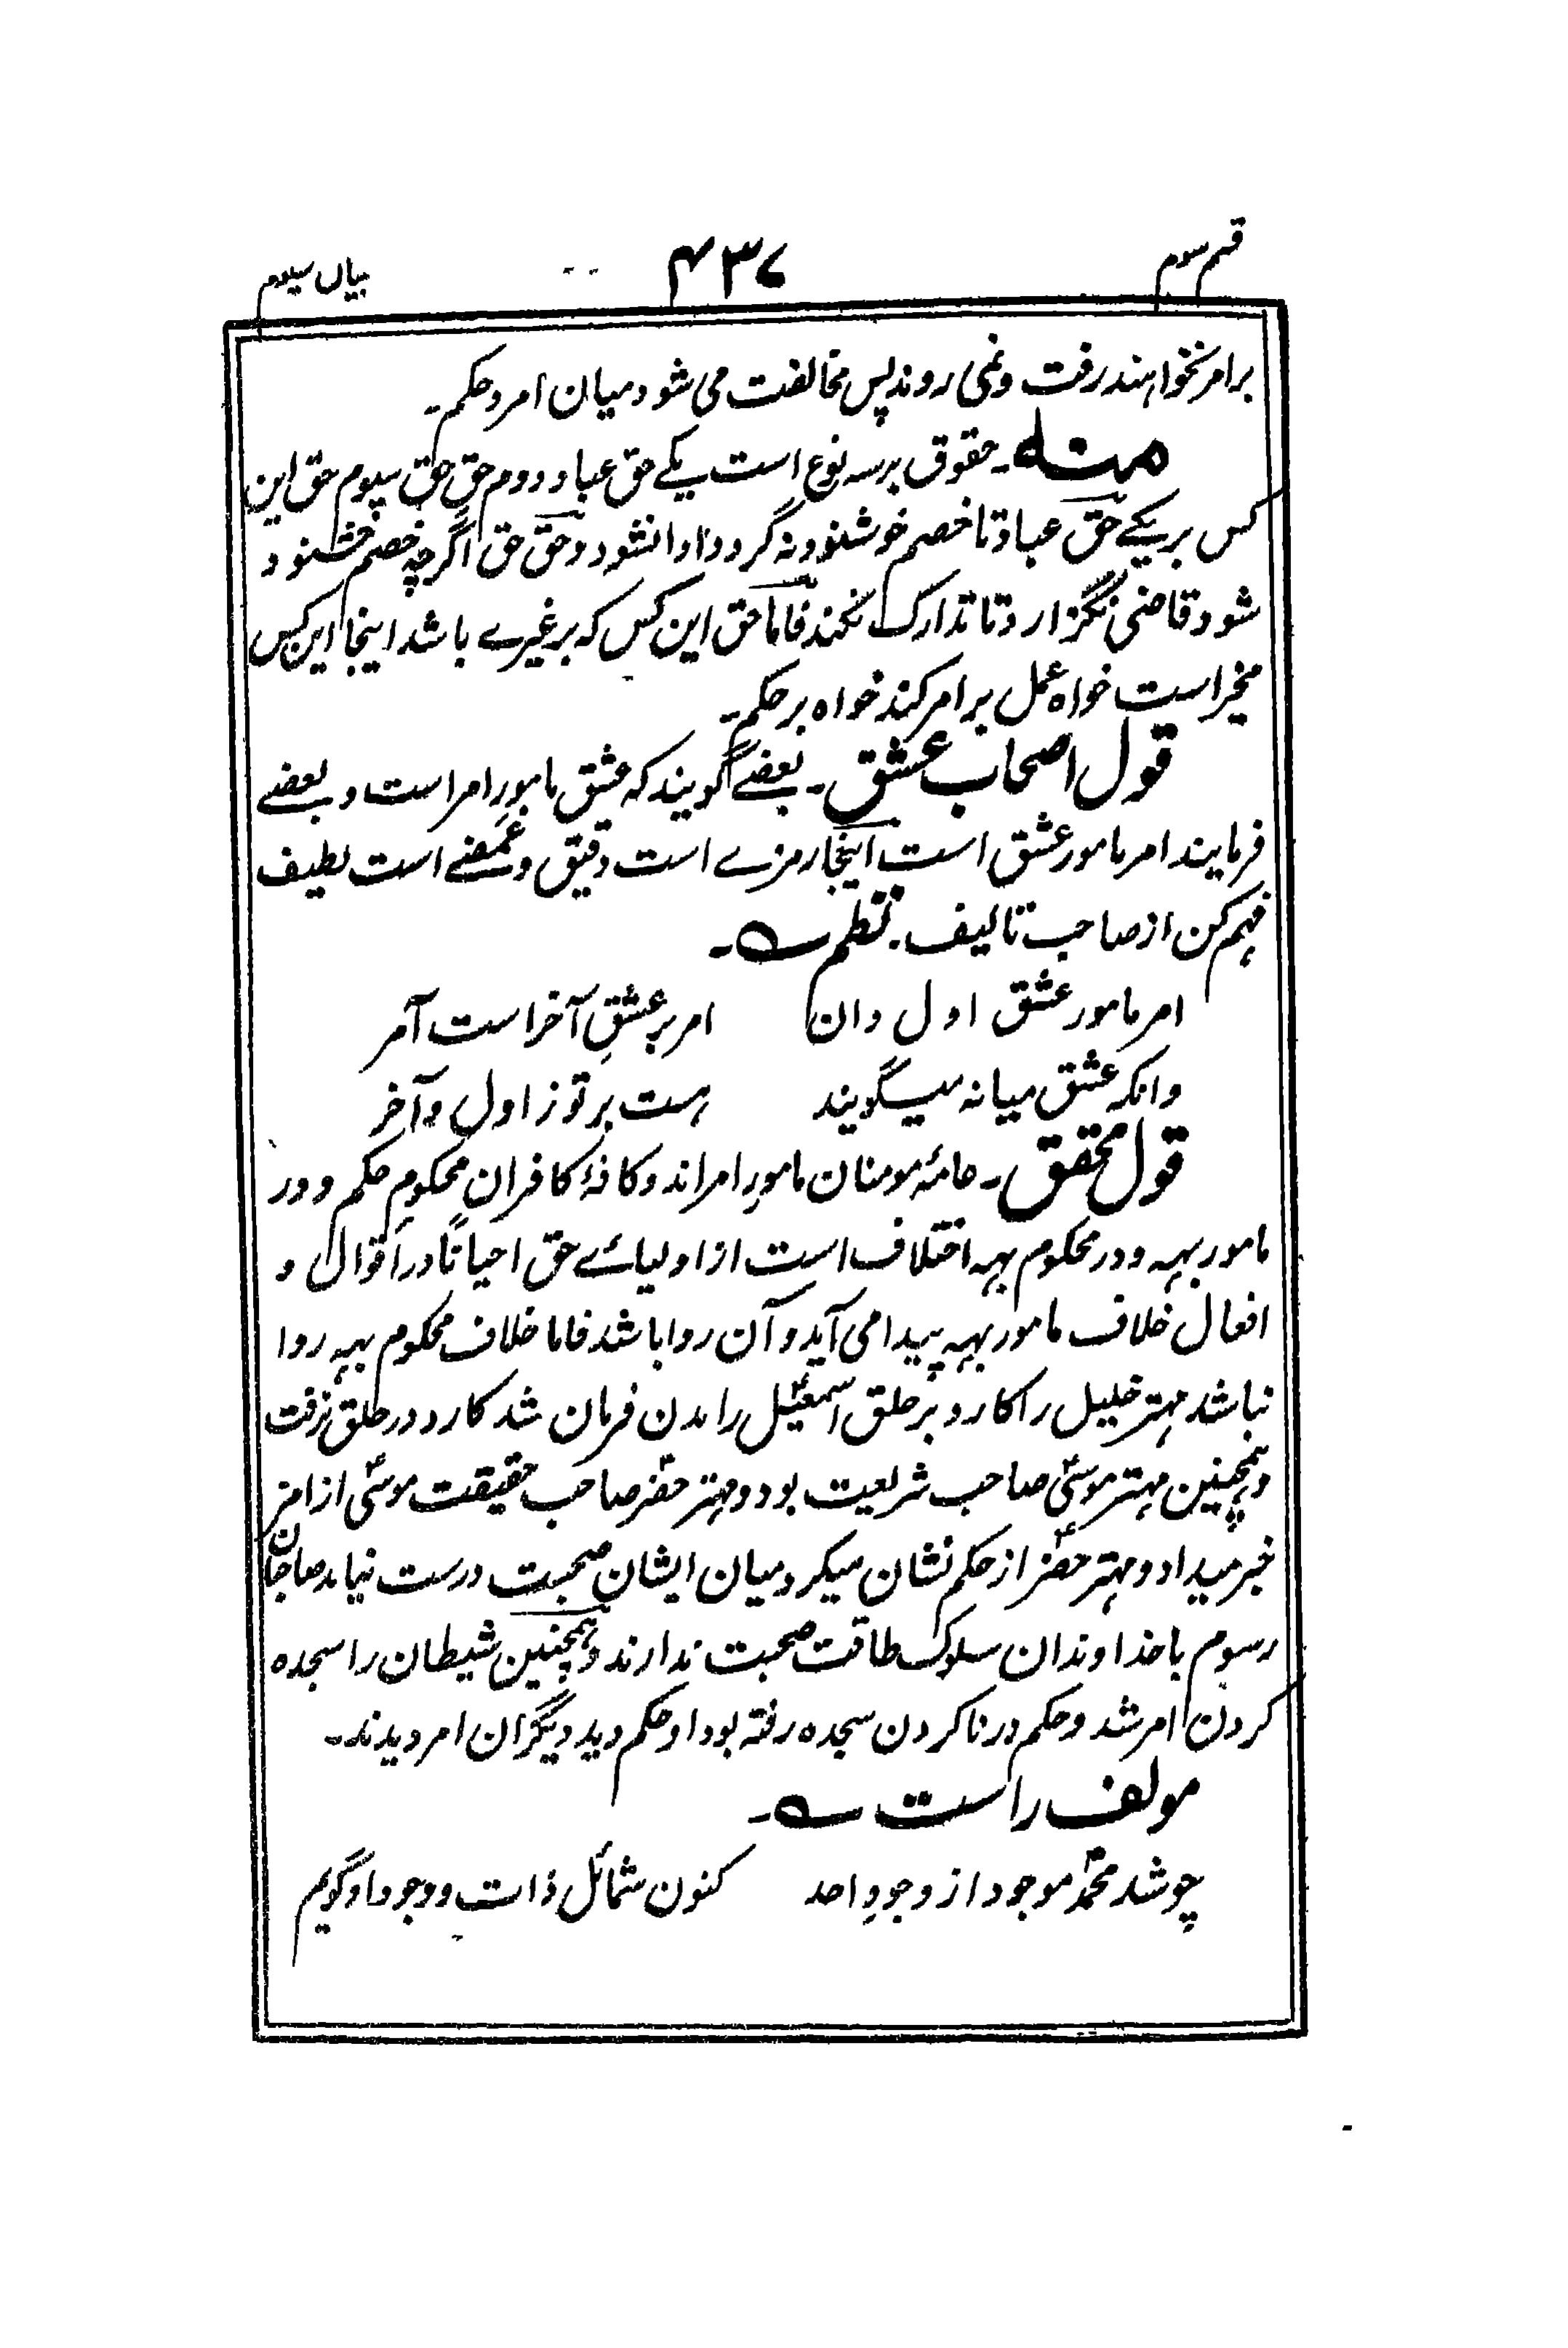 قسم سوم ۴۳۷ بیاں سیوم
برامر نخواہند رفت و نمی روند پس مخالفت می شود میان امر و حکم۔
منہ۔ حقوق بر سہ نوع است یکے حق عباد دوم حقِ حق سیوم حق این
کس بریکے حق عباد تا خصم خوشنود نہ گردد ادا نشود و حقِّ حق اگرچہ خصم خشنود
شود قاضی نگزارد تا تدارک نکند فاما حق این کس کہ بر غیرے باشد اینجا این کس
مخیر است خواہ عمل برامر کند خواہ بر حکم۔
قول اصحاب عشق۔ بعضے گویند کہ عشق مامورِ امر است و بعضے
فرمایند امر مامور عشق است اینجا رمزے است دقیق و غمضے است لطیف
فہم کن از صاحب تالیف۔ نظم ؎
امر مامور عشق اول دان امر بر عشقِ آخر است آمر
وانکہ عشق میانہ میگویند ہست برتر ز اول و آخر
قول محقق۔ عامۂ مومنان مامورِ امراند و کافۂ کافران محکومِ حکم و در
مامور بہ و در محکوم بہ اختلاف است از اولیائے حق احیاناً در اقوال و
افعال خلاف مامور بہ پیدا می آید و آن روا باشد فاما خلاف محکوم بہ روا
نباشد مہتر خلیل را کارد بر حلق اسمعیلؑ راندن فرمان شد کارد در حلق نرفت
و ہمچنین مہتر موسیؑ صاحب شریعت بود و مہتر خضرؑ صاحب حقیقت موسیؑ از امر
خبر میداد و مہتر خضرؑ از حکم نشان میکرد میان ایشان صحبت درست نیامد صاحبان
رسوم با خداوندان سلوک طاقت صحبت ندارند و ہمچنین شیطان را سجدہ
کردن امر شد و حکم در ناکردن سجدہ رفتہ بود او حکم دید دیگران امر دیدند۔
مولف راست ؎
چو شد محمدؐ موجود از وجودِ احد کنون شمائل ذات و وجود او گویم